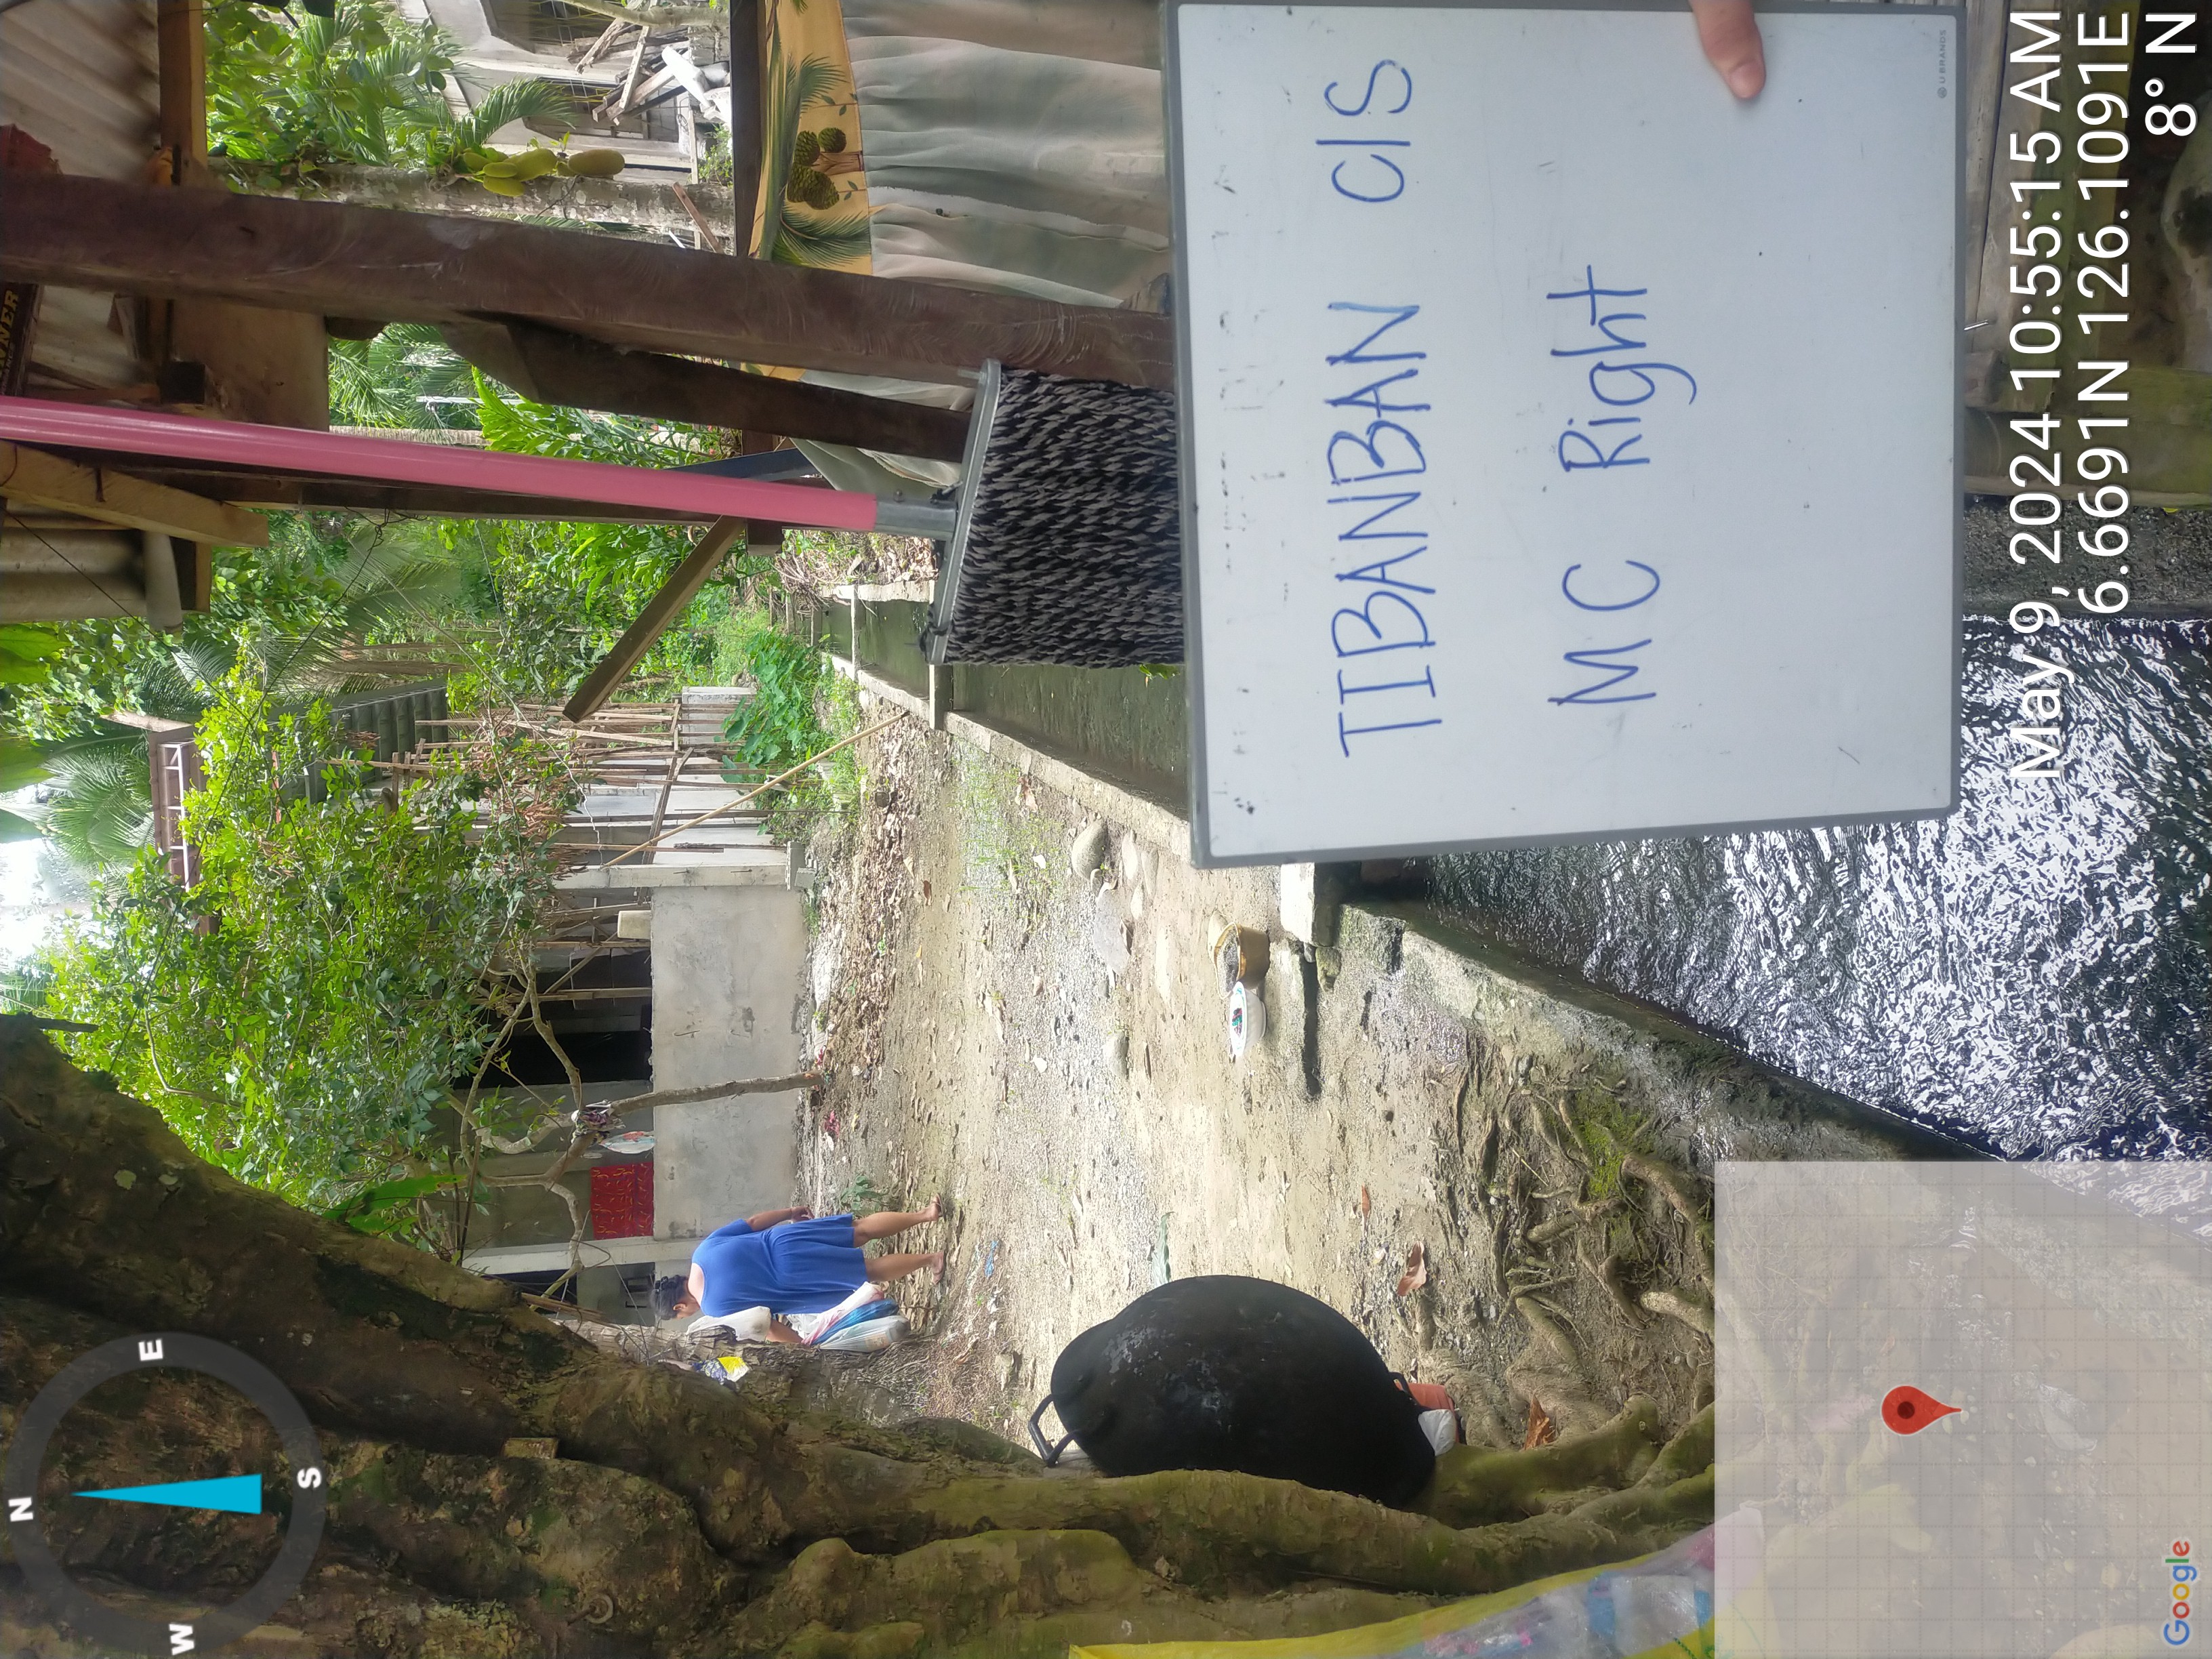 N
E
W
S
NNER
TIBANBAN C/S
MC Right
U BRANDS
May 9, 2024 10:55:15 AM
6.6691N 126.1091E
8° N
Google